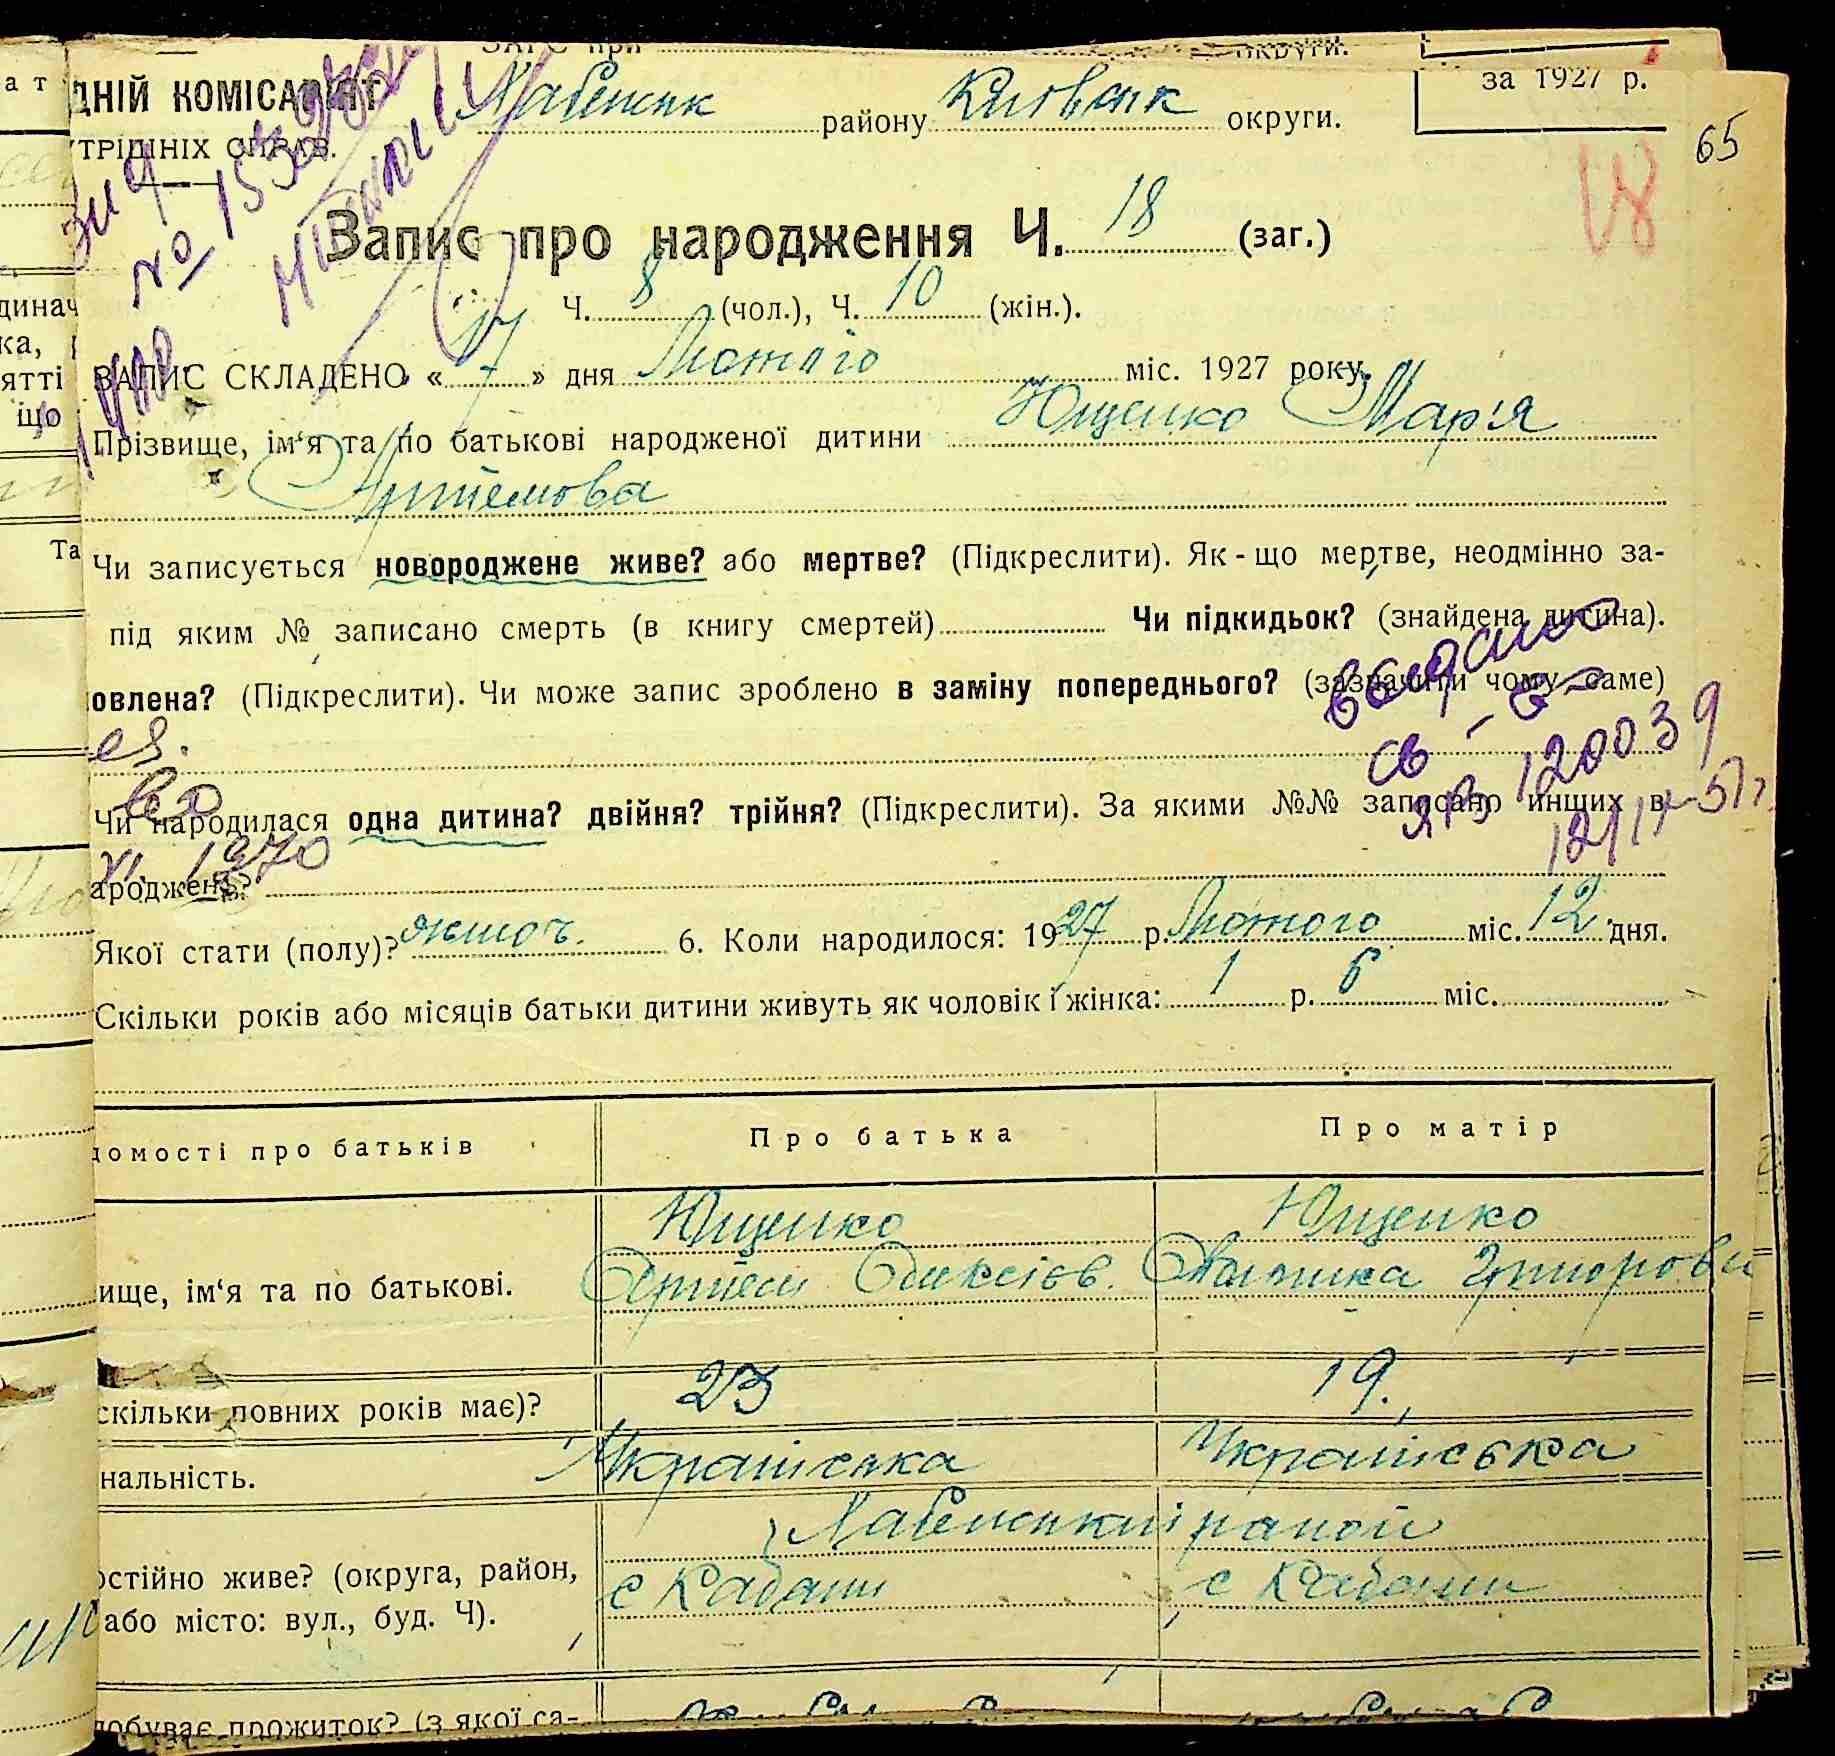 за 1927 р.
ДНІЙ КОМІСАРІЯТ
ТРІШНІХ СПРАВ.
Хабенськ району Київськ округи.
65
Запис про народження Ч. 18 (заг.)
18
Ч. 8 (чол.), Ч. 10 (жін.).
ЗАПИС СКЛАДЕНО « 17 » дня Лютого міс. 1927 року.
Прізвище, ім‘я та по батькові народженої дитини Ющенко Мар'я
Артемова
Чи записується новороджене живе? або мертве? (Підкреслити). Як-що мертве, неодмінно за-
під яким № записано смерть (в книгу смертей) Чи підкидьок? (знайдена дитина).
овлена? (Підкреслити). Чи може запис зроблено в заміну попереднього? (зазначити чому саме)
выдано
св-о
ЯВ 120039
Чи народилася одна дитина? двійня? трійня? (Підкреслити). За якими №№ записано инших в
ароджень?
1970
Якої стати (полу)? жіноч. 6. Коли народилося: 1927 р. Лютого міс. 12 дня.
Скільки років або місяців батьки дитини живуть як чоловік і жінка: 1 р. 6 міс.
домості про батьків Про батька Про матір
Ющенко Ющенко
ище, ім‘я та по батькові. Артем Олексієв.
скільки повних років має)? 23 19.
нальність. Українська Українська
Хабенський район
остійно живе? (округа, район, с Кабани с Кабани
або місто: вул., буд. Ч).
добуває прожиток? (з якої са-